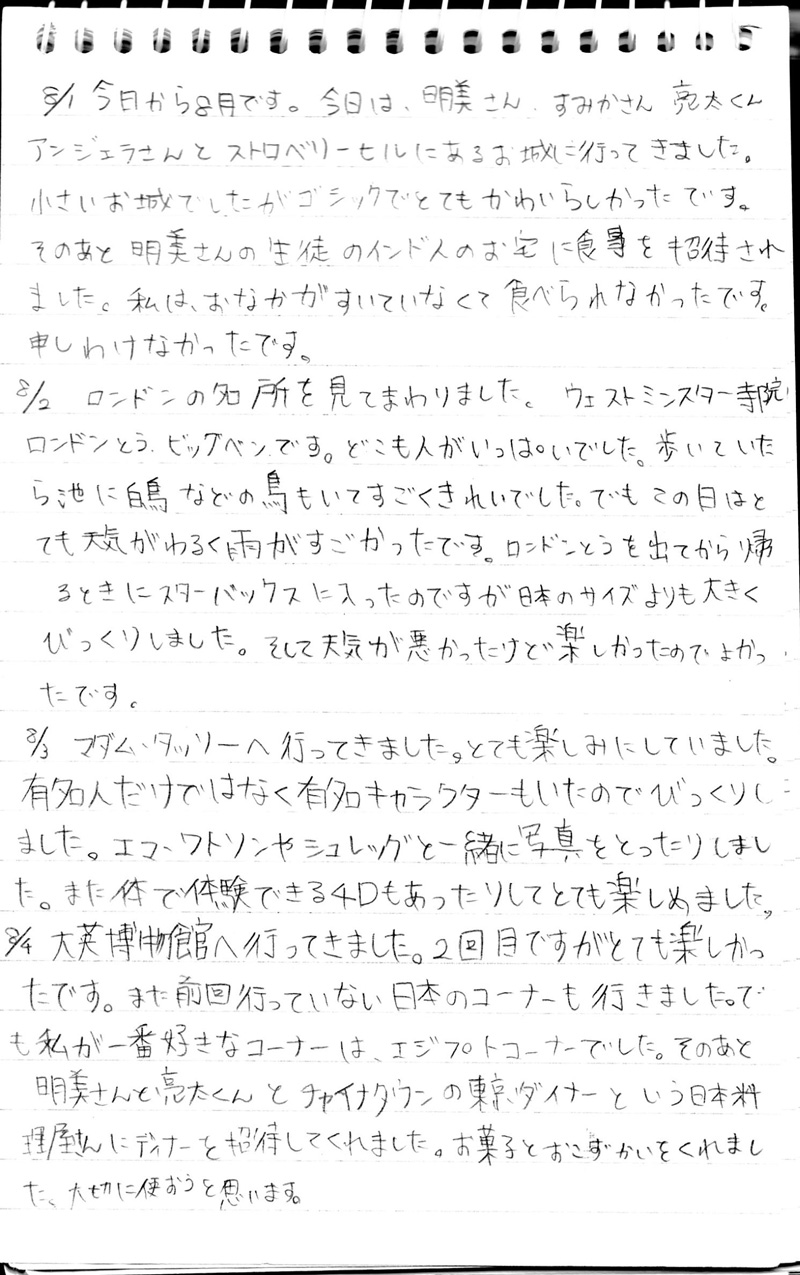 8/1 今日から8月です。今日は、明美さん、すみかさん 亮太くん
アンジェラさんとストロベリーヒルにあるお城に行ってきました。
小さいお城でしたがゴシックでとてもかわいらしかったです。
そのあと明美さんの生徒のインド人のお宅に食事を招待され
ました。私は、おなかがすいていなくて食べられなかったです。
申しわけなかったです。
8/2 ロンドンの名所を見てまわりました。ウェストミンスター寺院
ロンドンとう、ビッグベンです。どこも人がいっぱいでした。歩いていた
ら池に白鳥などの鳥もいてすごくきれいでした。でもこの日はと
ても天気がわるく雨がすごかったです。ロンドンとうを出てから帰
るときにスターバックスに入ったのですが日本のサイズよりも大きく
びっくりしました。そして天気が悪かったけど楽しかったのでよかっ
たです。
8/3 マダム・タッソーへ行ってきました。とても楽しみにしていました。
有名人だけではなく有名キャラクターもいたのでびっくりし
ました。エマ・ワトソンやシュレッグと一緒に写真をとったりしまし
た。また体で体験できる4Dもあったりしてとても楽しめました。
8/4 大英博物館へ行ってきました。2回目ですがとても楽しかっ
たです。また前回行っていない日本のコーナーも行きました。で
も私が一番好きなコーナーは、エジプトコーナーでした。そのあと
明美さんと亮太くんとチャイナタウンの東京ダイナーという日本料
理屋さんにディナーを招待してくれました。お菓子とおこずかいをくれまし
た、大切に使おうと思います。